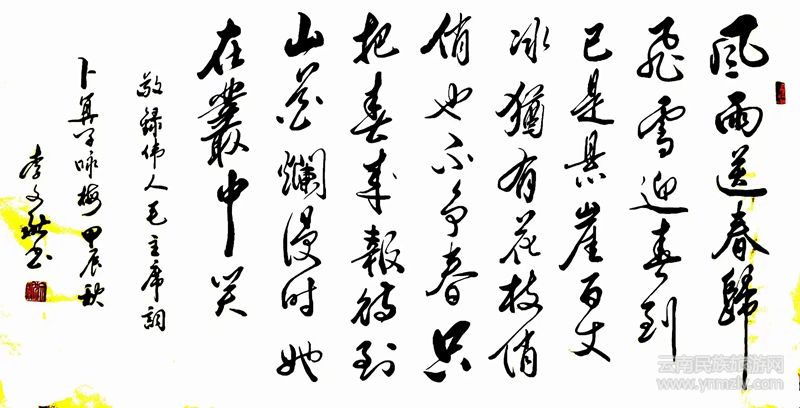 風雨送春歸
飛雪迎春到
已是懸崖百丈
冰猶有花枝俏
俏也不爭春只
把春來報待到
山花爛漫時她
在叢中笑
敬録伟人毛主席詞
卜算子咏梅 甲辰秋
李文
书
云南民族旅游网
www.ynmzly.com